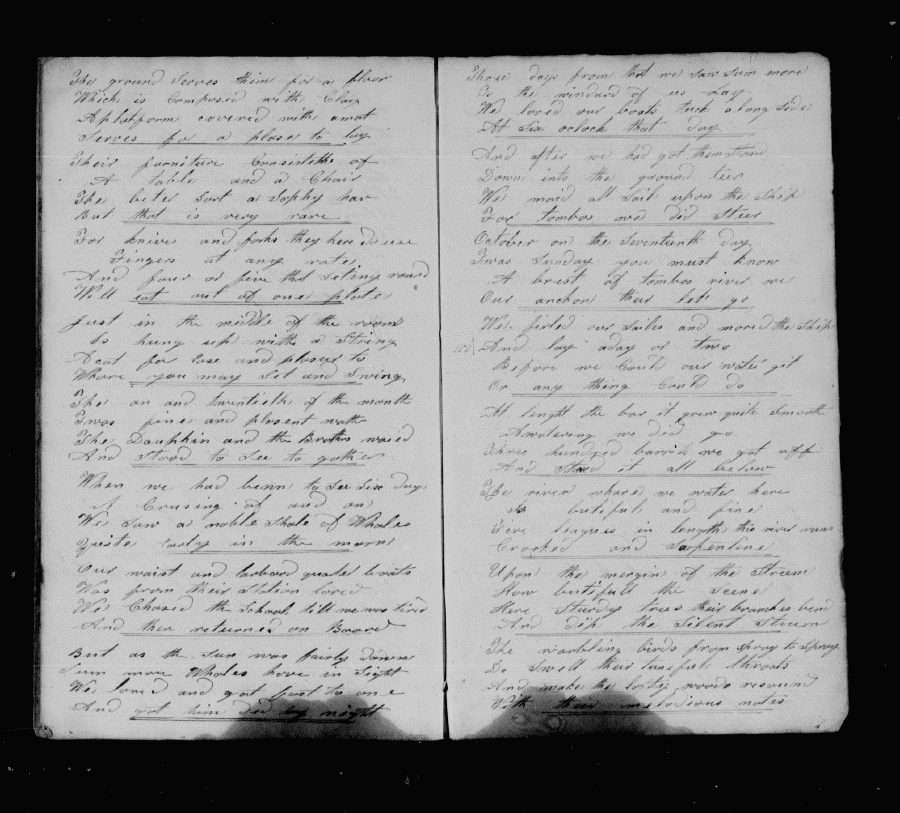 The ground Serves them for a floor
Which is Composed with Clay
A platform covered with a mat
Serves for a plase to lay
Their furniture Consisteth of
A table and a Chair
The beter Sort a Sophy hav
But that is very rare
For knives and forks they here do use
Fingers at any rate
And four or five that seting round
Will eat out of one plate
Just in the middle of the room
Is hung up with a String
A cot for ease and plesure to
Whare you may Set and Swing
The on and twentieth of the month
Twas fine and plesent wath
The Dauphin and the Brothers
And Stood to Sea to gather
When we had benn to Sea Six days
A Crusing of and on
We Saw a noble Shole of Whales
Quite early in the morn
Our waist and larbord quater boats
Was from their Station lored
We Chased the School till we was tired
And then returned on Board
But as the Sun was fairly down
Sum more Whales hove in Sight
We lored and got fast to one
And got him ded by night
Three days from that we Saw Sum more
To the windard of us lay
We lored our boats tuck along Side
At Six oclock that day
And after we had got them
Down into the ground teer
We maid all Sail upon the Ship
For tombos we did Steer
October on the Seventeenth day
Twas Sunday you must know
A brest of tombos river we
Our anchor thus let go
We firled our Sailes and mored the Ship
And lay a day or two
Before we Could our water git
Or any thing Could do
At lenght the bar it grew quite Smooth
A watering we did go
Three hundred barrils we got off
And Stoed it all below
The river whare we water here
Is butifull and fine
Five leagues in length this river runs
Crooked and Sarpentine
Upon the mergin of the Streem
How butifull the Scene
Here Sturdy trees their branches bend
And dip the Silent Streem
The warbling birds from Spray to Spray
Do Swell their tunefull throats
And make the lofty woods resound
With their melodious notes